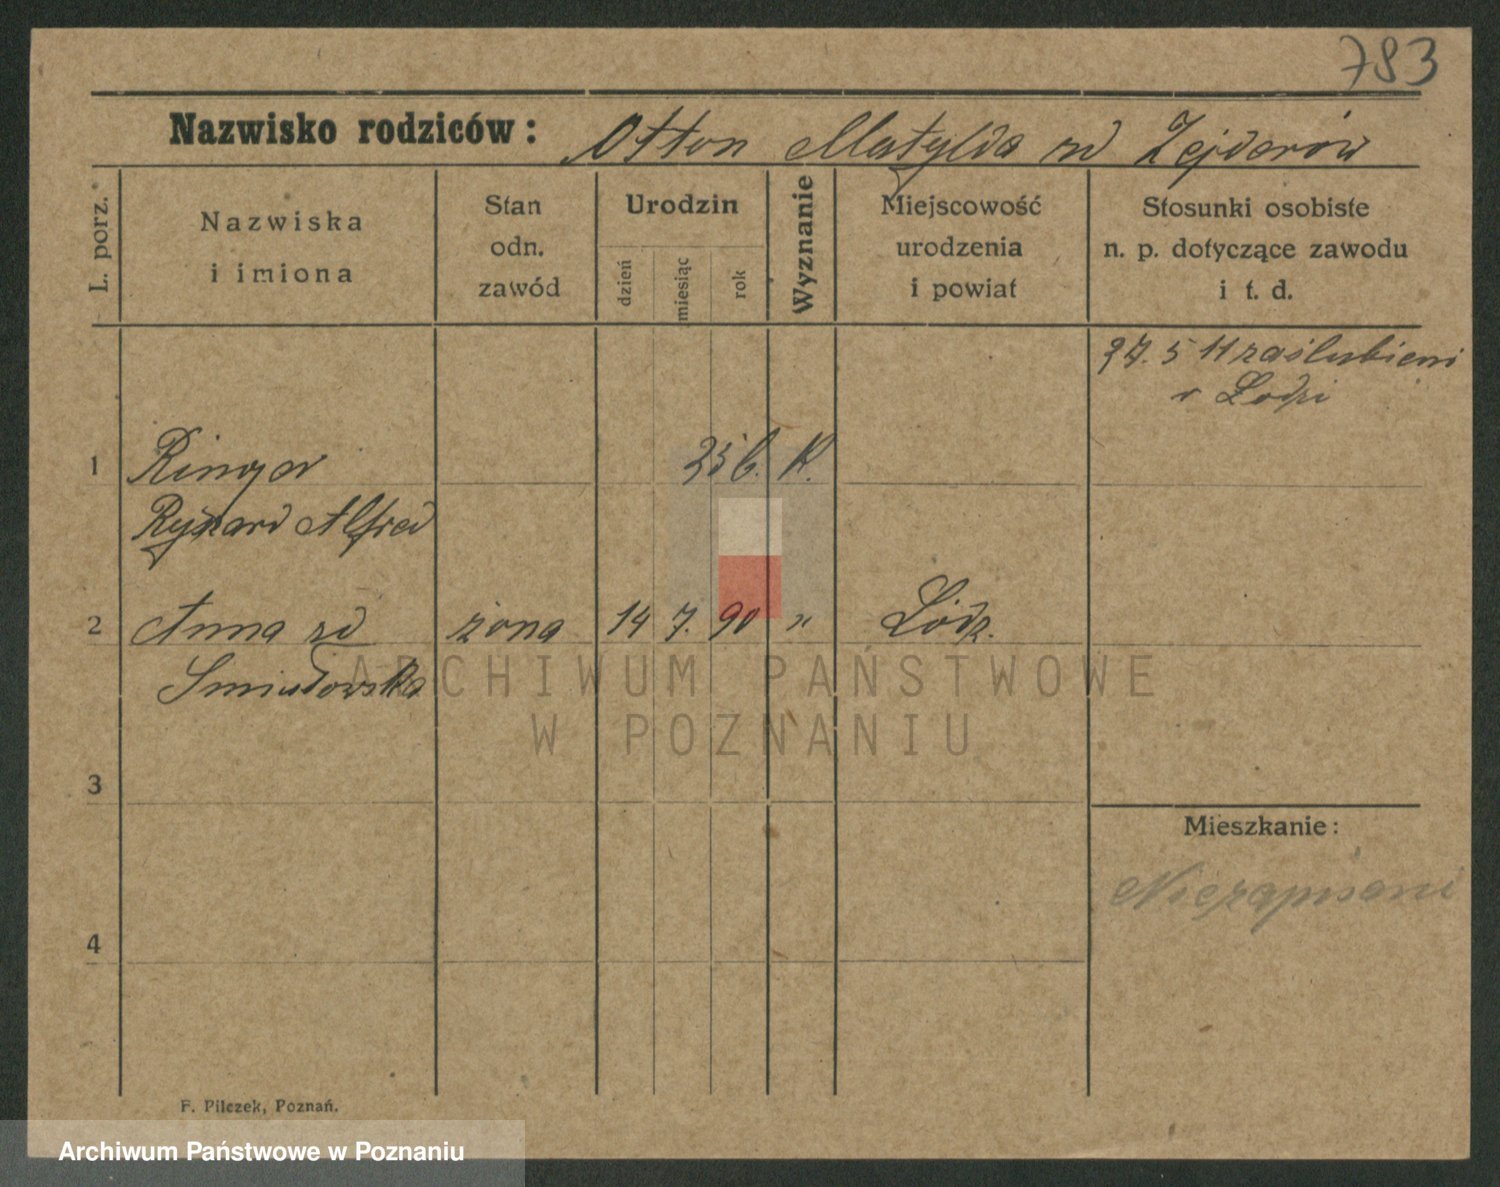 783
Nazwisko rodziców: Otton Matylda zd Zejderów
L. porz.
Nazwiska
i imiona
Stan
odn.
zawód
Urodzin
dzień
miesiąc
rok
Wyznanie
Miejscowość
urodzenia
i powiat
Stosunki osobiste
n. p. dotyczące zawodu
i t. d.
27. 5 11 zaślubieni
w Łodzi
1 Ringer 25 l. K.
Ryszard Alfred
2 Anna zd żona 14 7. 90 " Łódz.
Smiałowska
ARCHIWUM PAŃSTWOWE
W POZNANIU
3
Mieszkanie:
Niezapisani
4
F. Pilczek, Poznań.
Archiwum Państwowe w Poznaniu